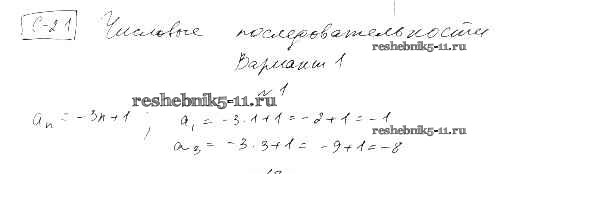 С-21 Числовые последовательности
reshebnik5-11.ru
Вариант 1
№1
reshebnik5-11.ru
aₙ = -3n+1 ; a₁ = -3·1+1 = -2+1 = -1
reshebnik5-11.ru
a₃ = -3·3+1 = -9+1 = -8